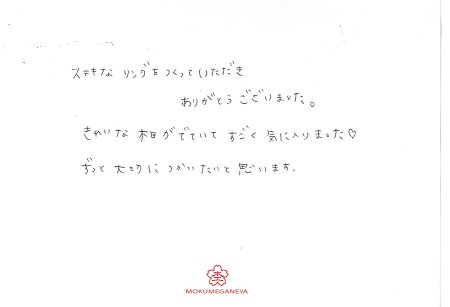 ステキな リングをつくっていただき
ありがとう ございました。
きれいな 木目がでていて すごく 気に入りました♡
ずっと 大切に つかいたいと 思います。
杢
MOKUMEGANEYA